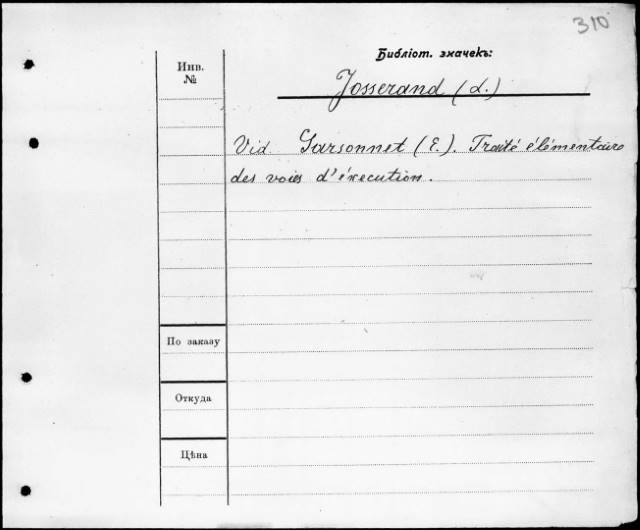 310
Библіот. значекъ:
Инв.
№
Josserand (L.)
Vid. Garsonnet (E.). Traité élémentaire
des voies d'éxecution.
По заказу
Откуда
Цѣна